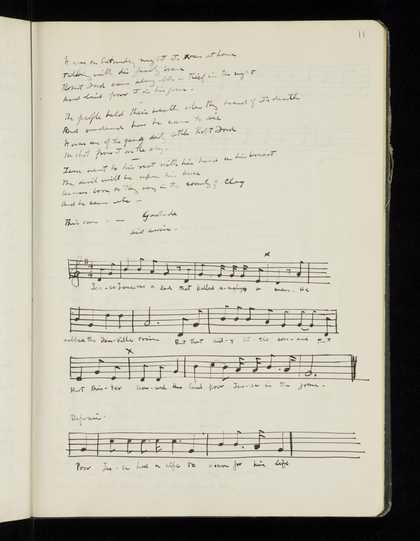 11
It was on Saturday night J. was at home
Talking with his family brave
Robert Ford came along like a thief in the night
And laid poor J. in his grave.
The people held their breath when they heard of J's death
And wondered how he came to die
It was one of the gang called little Rob't Ford
He shot poor J. on the sly.
Jesse went to his rest with his hand on his breast
The devil will be upon his knee
He was born one day in the county of Clay
And he came
This song
Jes-se James was a lad that killed a-many a man. He
robbed the Danville train But that
that laid poor Jes-se in the grave.
Refrain.
Poor Jes-se had a wife to mourn for his life